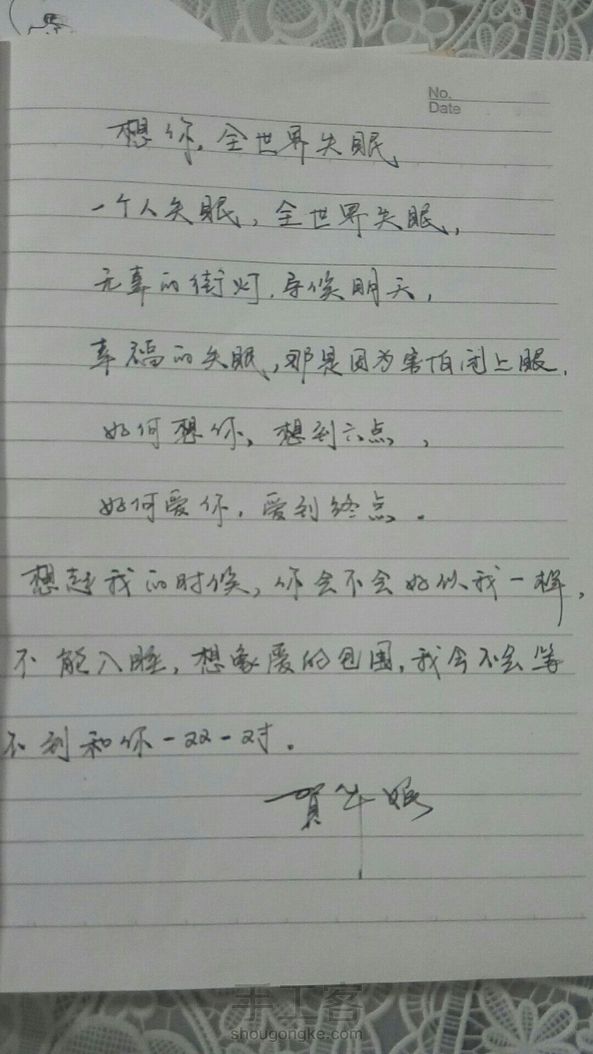 No.
Date
想你，全世界失眠、
一个人失眠，全世界失眠，
无辜的街灯，守候明天，
幸福的失眠，那是因为害怕闭上眼，
如何想你，想到六点，
如何爱你，爱到终点。
想起我的时候，你会不会好似我一样，
不能入睡，想象爱的包围，我会不会等
不到和你一双一对。
手工客
shougongke.com